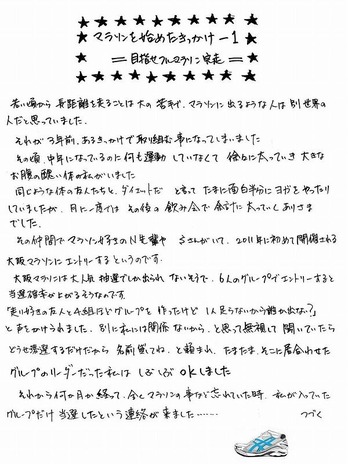 マラソンを始めたきっかけ－1
＝目指せフルマラソン完走＝
若い頃から長距離を走ることは大の苦手で、マラソンに出るような人は別世界の
人だと思っていました。
それが3年前、あるきっかけで取り組む事になってしまいました
その頃、中年になっているのに何も運動していなくて徐々に太っていき大きな
お腹の醜い体の私がいました
同じような体の友人たちと、ダイエットだと言ってたまに面白半分にヨガをやったり
していましたが、月に一度ではその後の飲み会で余計に太っていくありさま
でした。
その仲間でマラソン好きのN先輩やSさんがいて、2011年に初めて開催される
大阪マラソンにエントリーするというのです。
大阪マラソンは大人気 抽選でしか出られないそうで、6人のグループでエントリーすると
当選確率が上がるそうなのです。
「走い好きの友人と4組ほどグループを作ったけど1人足らないから誰か出ない?」
と声をかけられました。別に私には関係ないから、と思って無視して聞いていたら
どうせ落選するだけだから名前貸してね、と頼まれ、たまたまそこに居合わせた
グループのリーダーだった私は しぶしぶOKしました
それから何か月か経って、全くマラソンの事など忘れていた時、私が入っていた
グループだけ当選したという連絡が来ました……
つづく